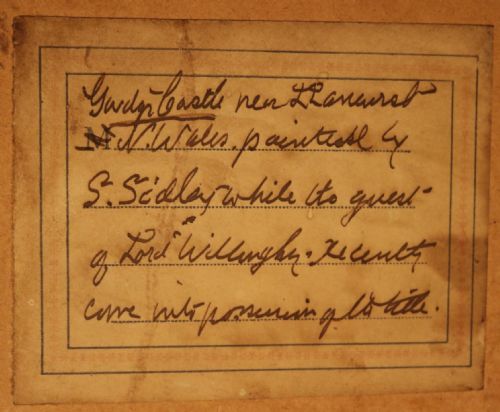 Gwydyr Castle near Llanwrst
N. Wales. painted by
S. Sidley while the guest
of Lord Willoughby. recently
come into possession of the title.